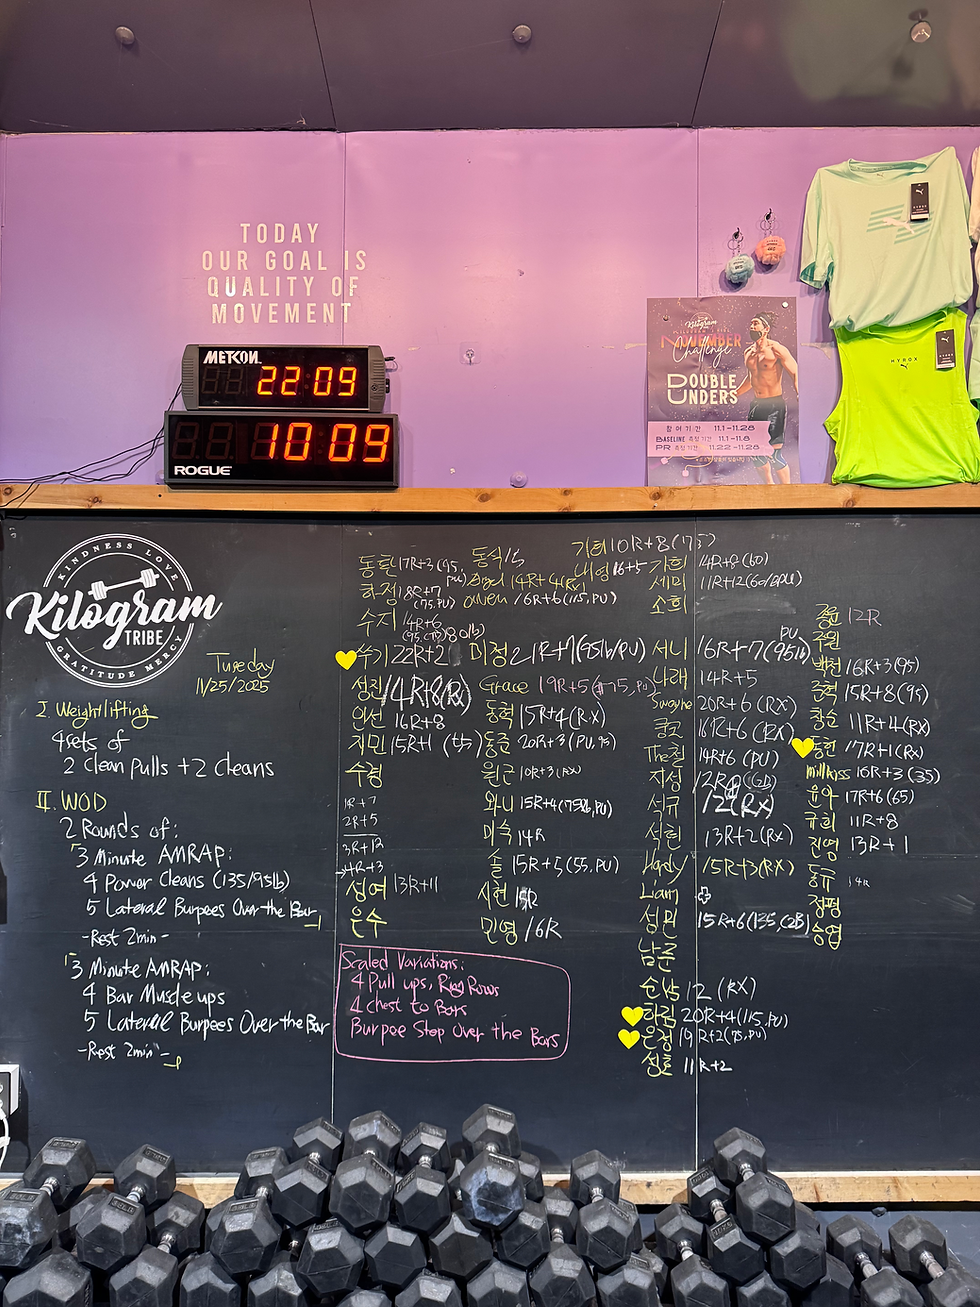 TODAY
OUR GOAL IS
QUALITY OF
MOVEMENT
METCON
22 09
10 09
ROGUE
Kilogram
NOVEMBER
Challenge
DOUBLE
UNDERS
참여기간 11.1-11.28
BASELINE 측정기간 11.1-11.8
PR 측정기간 11.22-11.28
HYROX
KINDNESS LOVE
Kilogram
TRIBE
GRATITUDE MERCY
Tuesday
11/25/2025
I. Weightlifting
4 sets of
2 Clean pulls + 2 Cleans
II. WOD
2 Rounds of:
3 Minute AMRAP:
4 Power Cleans (135/95lb)
5 Lateral Burpees Over the Bar
-Rest 2min-
3 Minute AMRAP:
4 Bar Muscle ups
5 Lateral Burpees Over the Bar
-Rest 2min-
동현 17R+3 (95, PU)
하정 18R+7 (75, PU)
수지 14R+6
수기 22R+2
성진 14R+8 (Rx)
인선 16R+8
지민 15R+1
수경
1R+7
2R+5
3R+12
4R+3
성여 13R+11
은수
동식 15
Angel 14R+4 (Rx)
Owen 16R+6 (115, PU)
미정 21R+7 (95lb/PU)
Grace 19R+5
동혁 15R+4 (RX)
동준 20R+3 (PU, 95)
원근 10R+3 (RX)
와니 15R+4 (75lb, PU)
미숙 14R
솔 15R+5 (55, PU)
시현
민영 16R
Scaled Variations:
4 Pull ups, Ring Rows
4 Chest to Bars
Burpee Step Over the Bars
기희 10R+8 (75)
내영 16+5
가희 14R+8 (60)
세미 11R+12
소희
서니 16R+7 (95lb PU)
나래 14R+5
Swayne 20R+6 (RX)
16R+6 (RX)
The친 14R+6 (PU)
지성
석규 12 (RX)
석현 13R+2 (RX)
Hardy 15R+3 (RX)
Liam
성민 15R+6 (135, C2B)
남준
순남 12 (RX)
하림 20R+4 (115, PU)
은정 19R+2 (75, PU)
성호 11R+2
중훈 12R
주원
백천 16R+3 (95)
준혁 15R+8 (95)
창순 11R+4 (RX)
동현 17R+1 (Rx)
16R+3 (35)
윤아 17R+6 (65)
규희 11R+8
진영 13R+1
동규 14R
정평
승엽